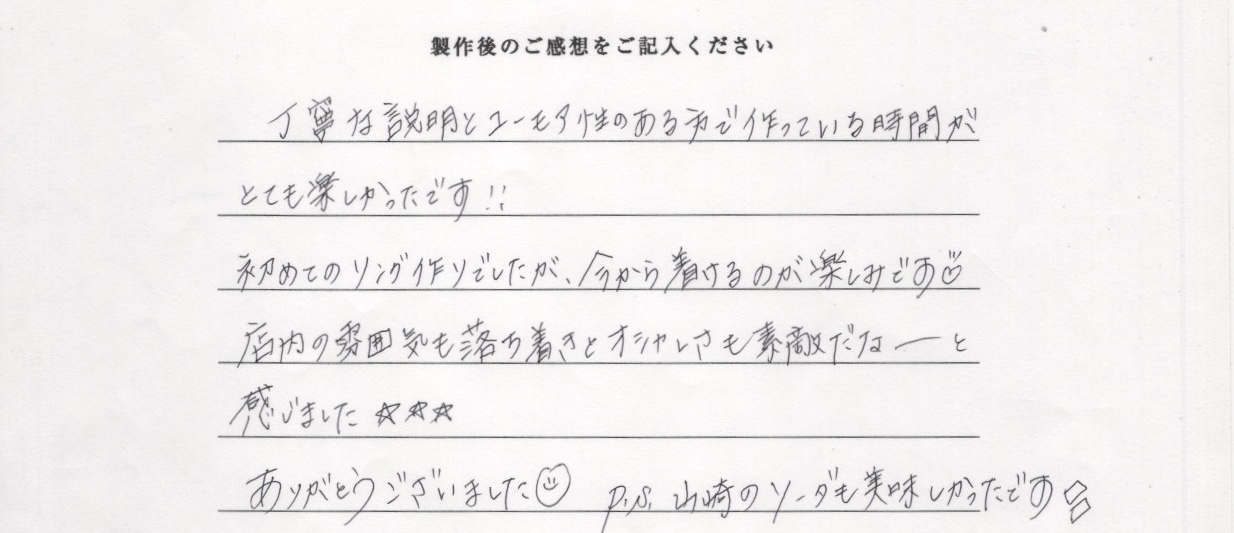 製作後のご感想をご記入ください
丁寧な説明とユーモア性のある方で作っている時間が
とても楽しかったです!!
初めてのリング作りでしたが、今から着けるのが楽しみです
店内の雰囲気も落ち着きとオシャレさも素敵だなーと
感じました ☆☆☆
ありがとうございました P.S. 山崎のソーダも美味しかったです